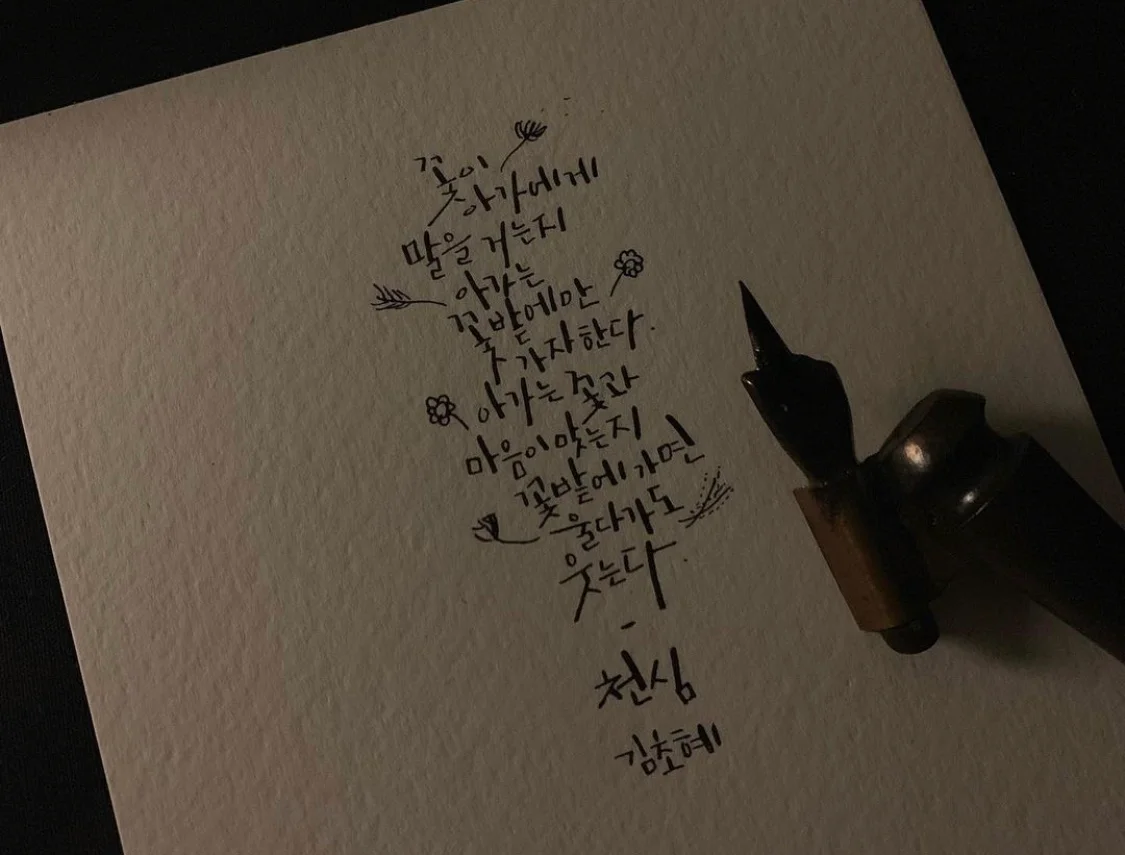 꽃이
아가에게
말을 거는지
아가는
꽃밭에만
가자한다.
아가는 꽃과
마음이 맞는지
꽃밭에 가면
울다가도
웃는다.
-
천심
김초혜